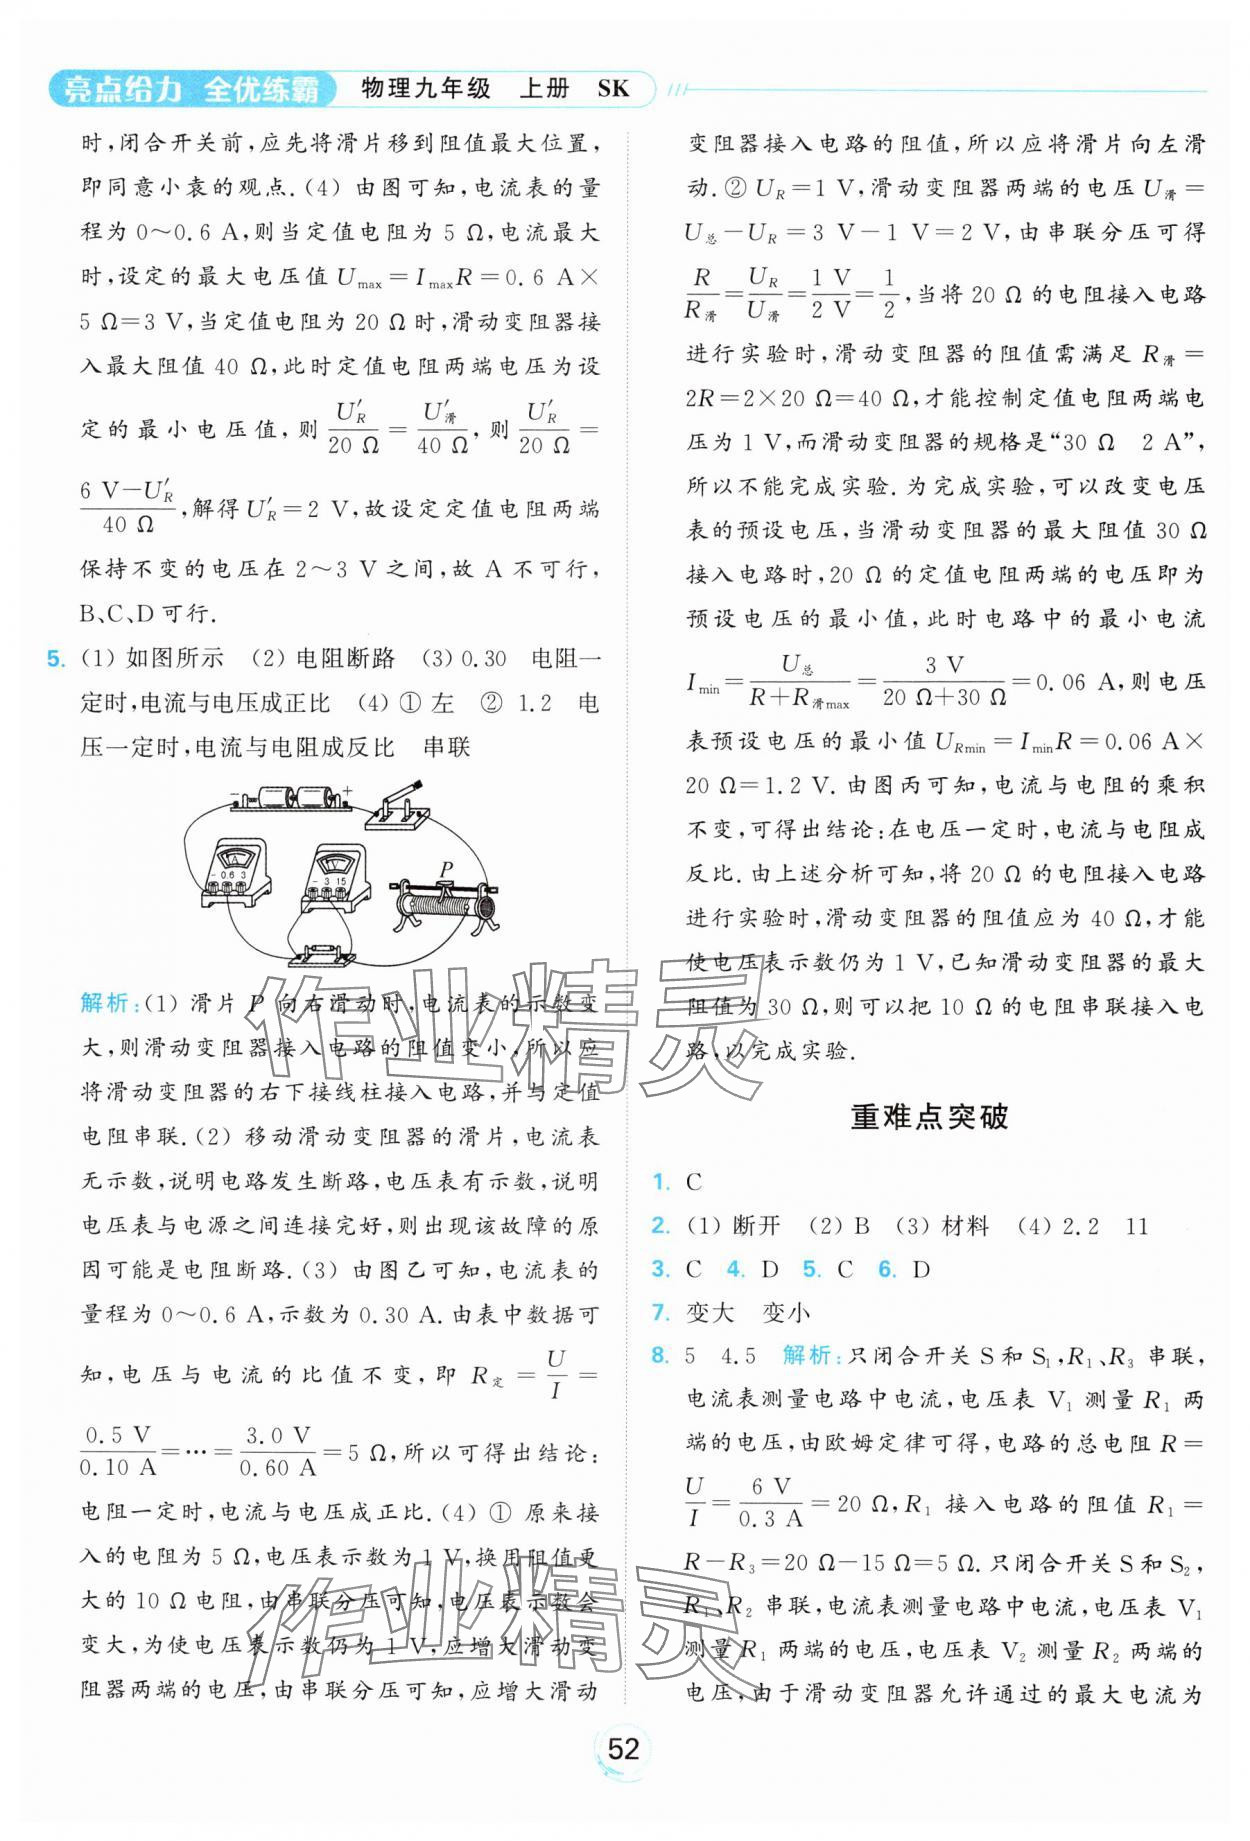 亮点给力 全优练霸 物理九年级 上册 SK
时,闭合开关前,应先将滑片移到阻值最大位置,
即同意小袁的观点.(4) 由图可知,电流表的量
程为 0～0.6 A,则当定值电阻为 5 Ω,电流最大
时,设定的最大电压值 Umax=ImaxR=0.6 A×
5 Ω=3 V,当定值电阻为 20 Ω 时,滑动变阻器接
入最大阻值 40 Ω,此时定值电阻两端电压为设
定的最小电压值,则 U′R/20 Ω=U′滑/40 Ω,则 U′R/20 Ω=
6 V−U′R/40 Ω,解得 U′R=2 V,故设定定值电阻两端
保持不变的电压在 2～3 V 之间,故 A 不可行,
B、C、D 可行.
5. (1) 如图所示 (2) 电阻断路 (3) 0.30 电阻一
定时,电流与电压成正比 (4) ① 左 ② 1.2 电
压一定时,电流与电阻成反比 串联
− +
A
− 0.6 3
V
− 3 15
P
解析:(1) 滑片 P 向右滑动时,电流表的示数变
大,则滑动变阻器接入电路的阻值变小,所以应
将滑动变阻器的右下接线柱接入电路,并与定值
电阻串联.(2) 移动滑动变阻器的滑片,电流表
无示数,说明电路发生断路,电压表有示数,说明
电压表与电源之间连接完好,则出现该故障的原
因可能是电阻断路.(3) 由图乙可知,电流表的
量程为 0～0.6 A,示数为 0.30 A.由表中数据可
知,电压与电流的比值不变,即 R定=U/I=
0.5 V/0.10 A=…=3.0 V/0.60 A=5 Ω,所以可得出结论:
电阻一定时,电流与电压成正比.(4) ① 原来接
入的电阻为 5 Ω,电压表示数为 1 V,换用阻值更
大的 10 Ω 电阻,由串联分压可知,电压表示数会
变大,为使电压表示数仍为 1 V,应增大滑动变
阻器两端的电压,由串联分压可知,应增大滑动
变阻器接入电路的阻值,所以应将滑片向左滑
动.② UR=1 V,滑动变阻器两端的电压 U滑=
U总−UR=3 V−1 V=2 V,由串联分压可得
R/R滑=UR/U滑=1 V/2 V=1/2,当将 20 Ω 的电阻接入电路
进行实验时,滑动变阻器的阻值需满足 R滑=
2R=2×20 Ω=40 Ω,才能控制定值电阻两端电
压为 1 V,而滑动变阻器的规格是“30 Ω 2 A”,
所以不能完成实验.为完成实验,可以改变电压
表的预设电压,当滑动变阻器的最大阻值 30 Ω
接入电路时,20 Ω 的定值电阻两端的电压即为
预设电压的最小值,此时电路中的最小电流
Imin=U总/(R+R滑max)=3 V/(20 Ω+30 Ω)=0.06 A,则电压
表预设电压的最小值 URmin=IminR=0.06 A×
20 Ω=1.2 V.由图丙可知,电流与电阻的乘积
不变,可得出结论:在电压一定时,电流与电阻成
反比.由上述分析可知,将 20 Ω 的电阻接入电路
进行实验时,滑动变阻器的阻值应为 40 Ω,才能
使电压表示数仍为 1 V,已知滑动变阻器的最大
阻值为 30 Ω,则可以把 10 Ω 的电阻串联接入电
路,以完成实验.
重难点突破
1. C
2. (1) 断开 (2) B (3) 材料 (4) 2.2 11
3. C 4. D 5. C 6. D
7. 变大 变小
8. 5 4.5 解析:只闭合开关 S 和 S1,R1、R3 串联,
电流表测量电路中电流,电压表 V1 测量 R1 两
端的电压,由欧姆定律可得,电路的总电阻 R=
U/I=6 V/0.3 A=20 Ω,R1 接入电路的阻值 R1=
R−R3=20 Ω−15 Ω=5 Ω.只闭合开关 S 和 S2,
R1、R2 串联,电流表测量电路中电流,电压表 V1
测量 R1 两端的电压,电压表 V2 测量 R2 两端的
电压,由于滑动变阻器允许通过的最大电流为
作业精灵
作业精灵
52